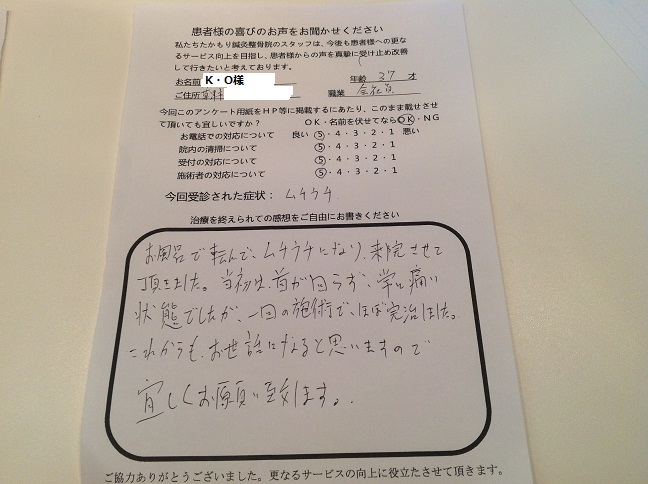 患者様の喜びのお声をお聞かせください
私たちたかもり鍼灸整骨院のスタッフは、今後も患者様への更な
るサービス向上を目指し、患者様からの声を真摯に受け止め改善
して行きたいと考えております。
お名前 K・O様 年齢 37 才
ご住所 草津 職業 会社員
今回このアンケート用紙をHP等に掲載するにあたり、このまま載せさせ
て頂いても宜しいですか? OK・名前を伏せてならOK・NG
お電話での対応について 良い ⑤・4・3・2・1 悪い
院内の清掃について ⑤・4・3・2・1
受付の対応について ⑤・4・3・2・1
施術者の対応について ⑤・4・3・2・1
今回受診された症状: ムチウチ
治療を終えられての感想をご自由にお書きください
お風呂で転んで、ムチウチになり、来院させて
頂きました。当初は、首が回らず、常に痛い
状態でしたが、一回の施術で、ほぼ完治しました。
これからも、お世話になると思いますので
宜しくお願い致します。
ご協力ありがとうございました。更なるサービスの向上に役立たせて頂きます。